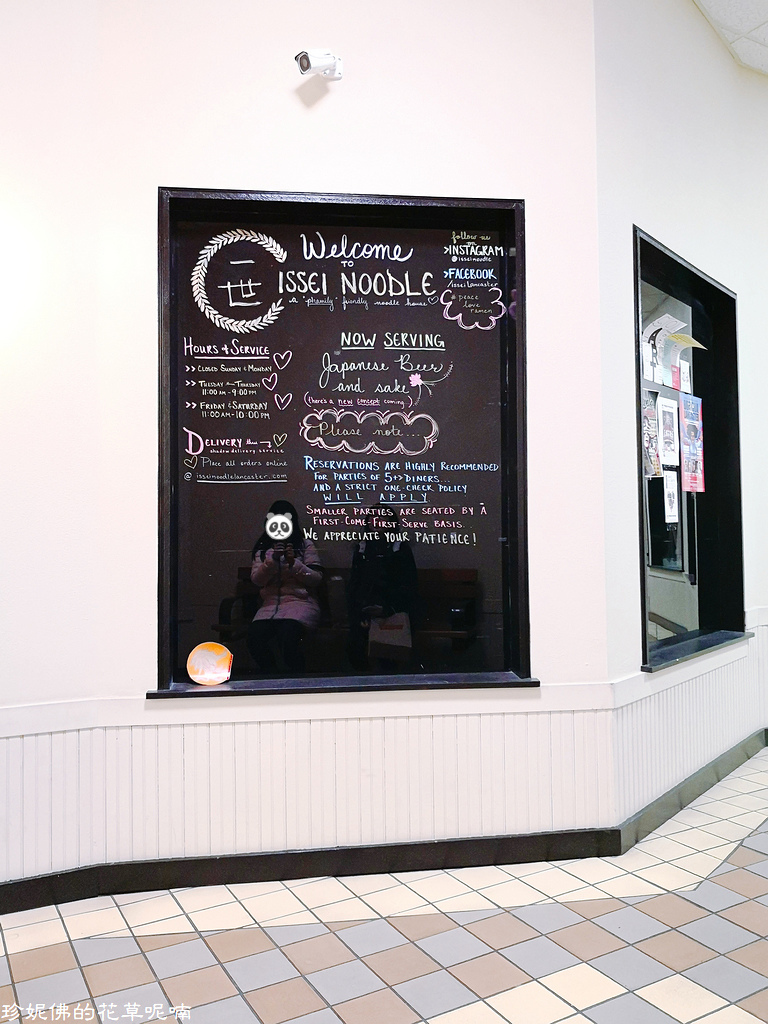 Welcome
TO
ISSEI NOODLE
a "phamily" friendly noodle house
一
世
follow us
on
>INSTAGRAM
@isseinoodle
>FACEBOOK
/isseilancaster
# peace
love
ramen
HOURS & SERVICE
>> CLOSED SUNDAY & MONDAY
>> TUESDAY - THURSDAY
11:00 AM - 9:00 PM
>> FRIDAY & SATURDAY
11:00 AM - 10:00 PM
DELIVERY thru
shadow delivery service
Place all orders online
@ isseinoodlelancaster.com
NOW SERVING
Japanese Beer
and sake
(there's a new concept coming
Please note...
RESERVATIONS ARE HIGHLY RECOMMENDED
FOR PARTIES OF 5+> DINERS...
AND A STRICT ONE-CHECK POLICY
WILL APPLY
SMALLER PARTIES ARE SEATED BY A
FIRST-COME-FIRST-SERVE BASIS.
WE APPRECIATE YOUR PATIENCE!
珍妮佛的花草呢喃